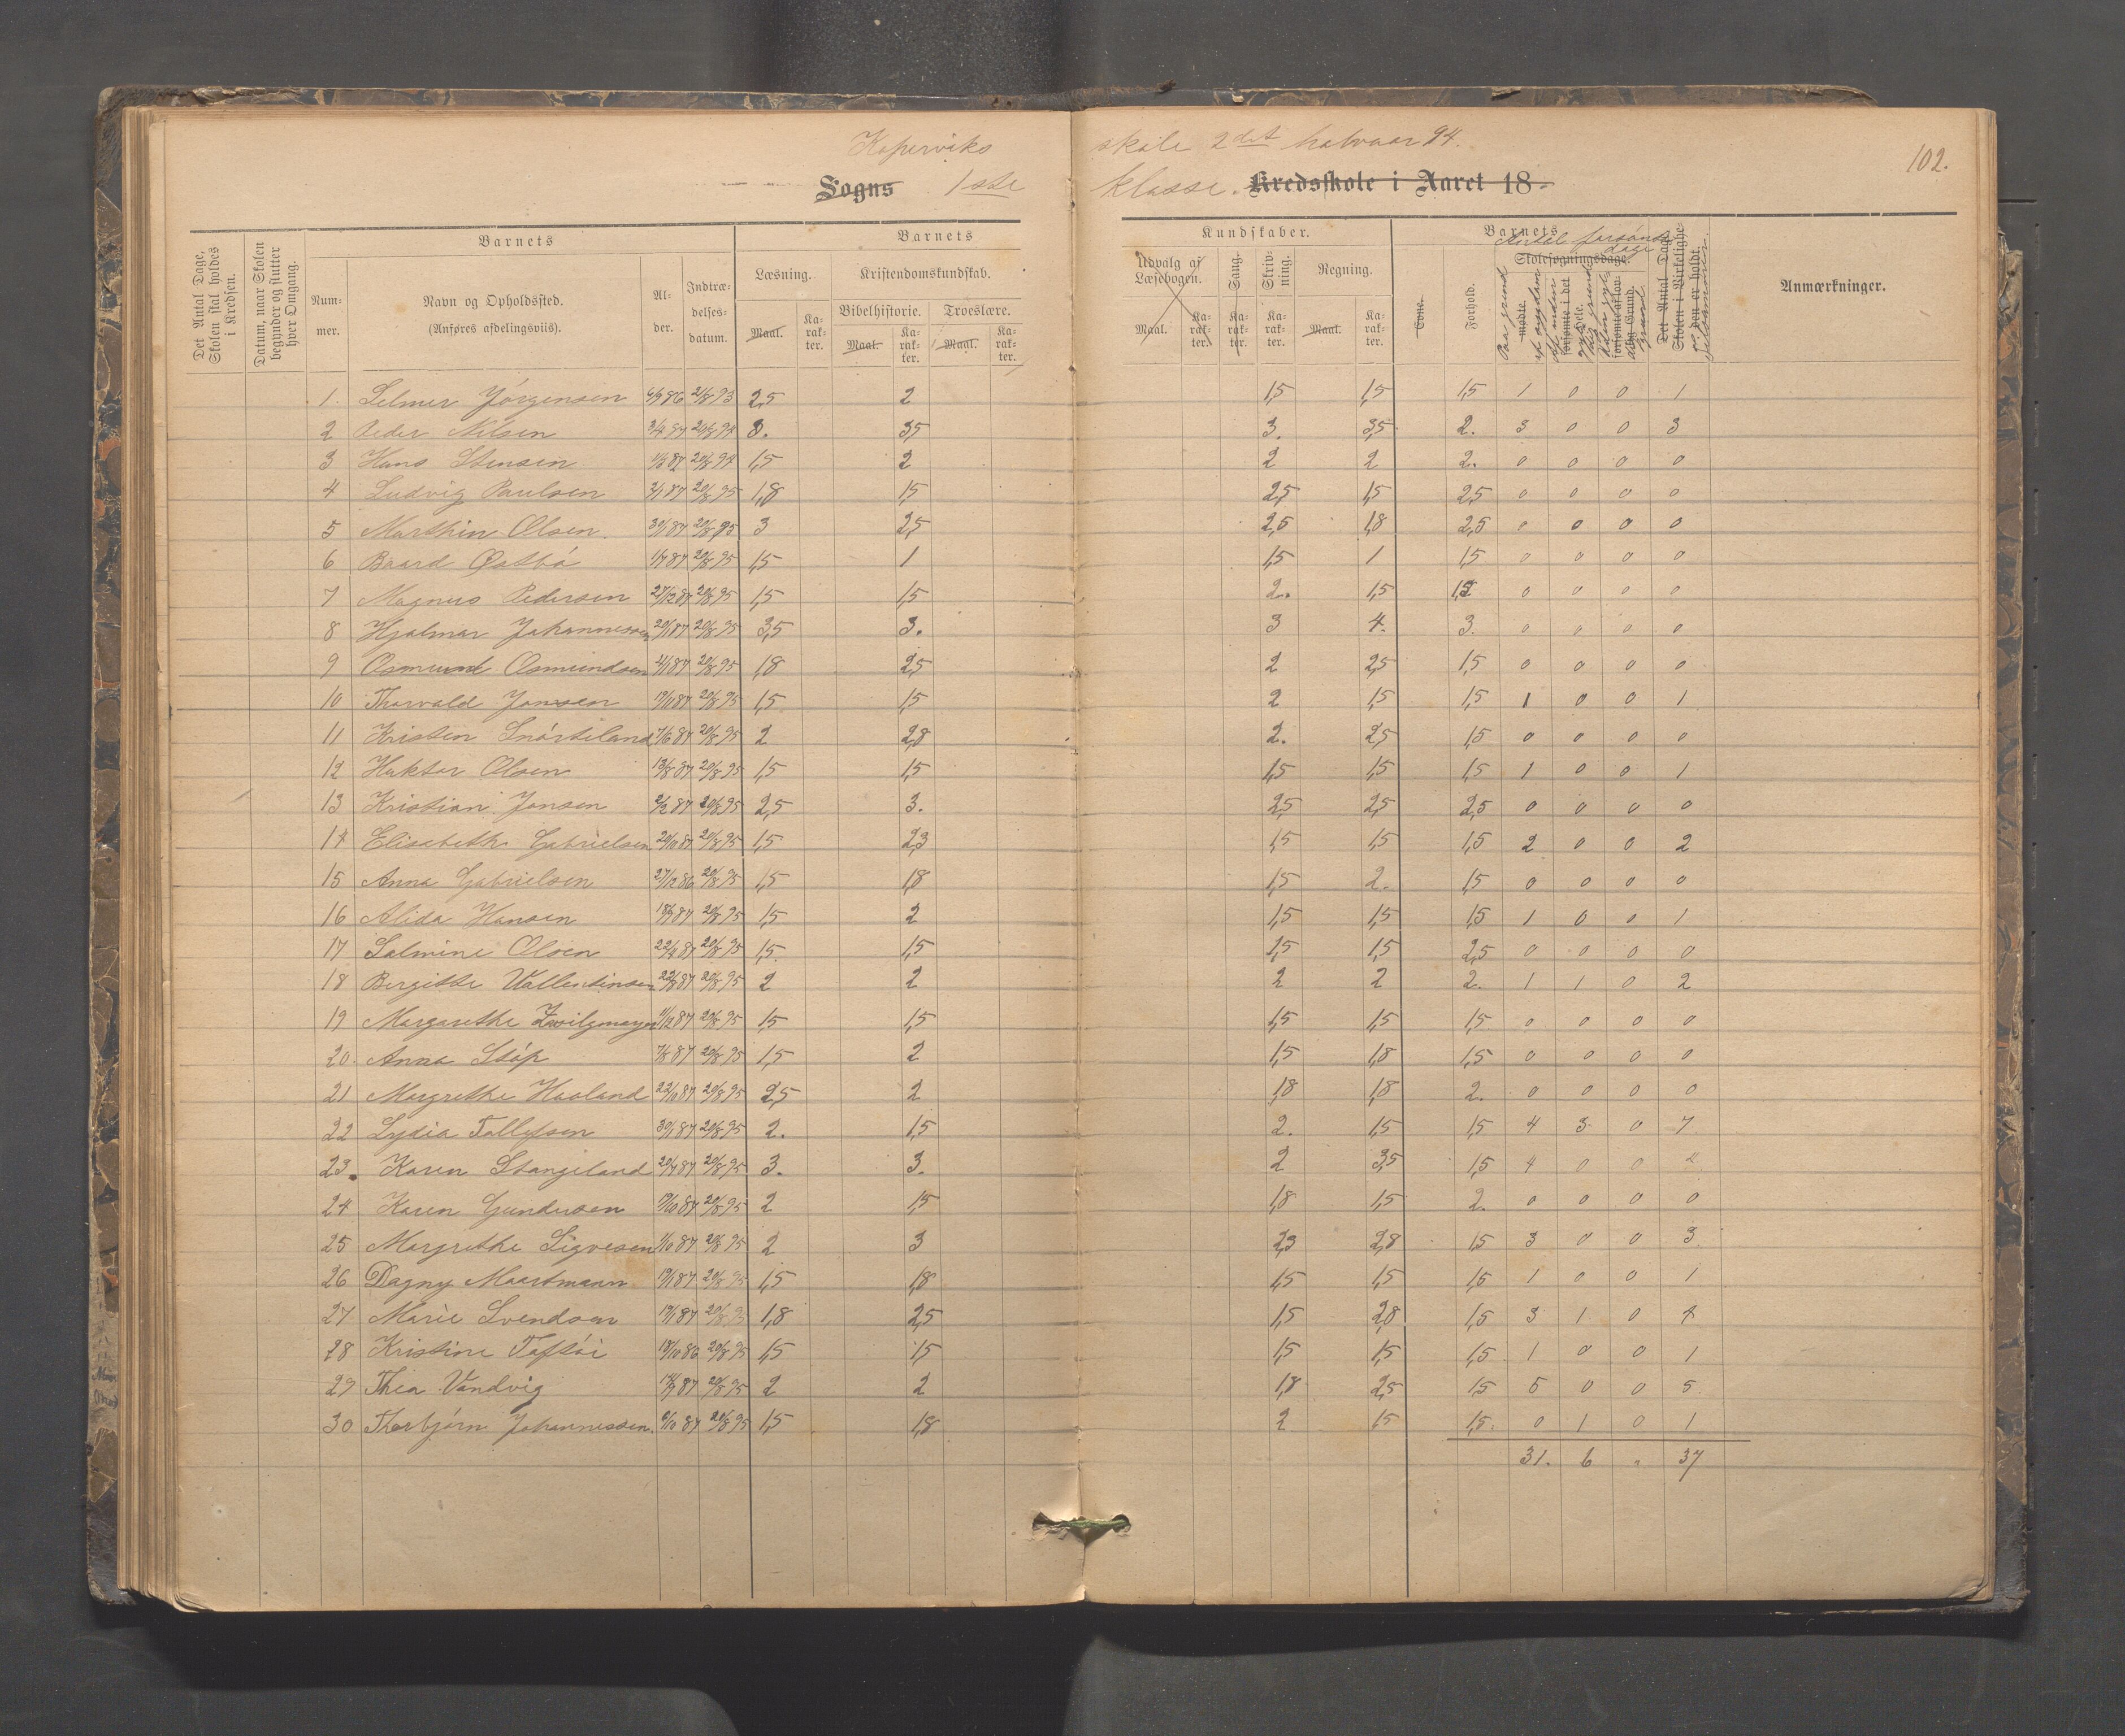 Koperviks skole 2det halvaar 94.
102.
Sogns 1ste klasse. Kredsskole i Aaret 18
Det Antal Dage, Skolen skal holdes i Kredsen.
Datum, naar Skolen begynder og slutter hver Omgang.
Barnets
Nummer.
Navn og Opholdssted. (Anføres afdelingsviis).
Alder.
Indtrædelsesdatum.
Barnets Kundskaber.
Læsning.
Kristendomskundskab.
Bibelhistorie. Troeslære.
Udvalg af Læsebogen.
Sang.
Skrivning.
Regning.
Maal. Karakter. Maal. Karakter. Maal. Karakter. Maal. Karakter. Karakter. Karakter. Maal. Karakter.
Evne.
Forhold.
Barnets
Antal forsømte dage
Skolesøgningsdage.
mødte.
forsømte i det Hele.
forsømte af lovlig Grund.
Det Antal Dage, Skolen i Virkeligheden er holdt.
Anmærkninger.
1. Selmer Jörgensen 6/9 86 21/8 93 2,5 2 1,5 1,5 1,5 1 0 0 1
2 Peder Nilsen 3/4 87 20/8 94 3. 3,5 3. 3,5 2. 3 0 0 3
3 Hans Stensen 87 20/8 94 1,5 2 2 2 2. 0 0 0 0
4 Ludvig Paulsen 2/1 87 20/8 95 1,8 1,5 2,5 1,5 2,5 0 0 0 0
5 Marthin Olsen. 30/1 87 20/8 95 3 2,5 2,5 1,8 2,5 0 0 0 0
6 Baard Østbö 1/7 87 20/8 95 1,5 1 1,5 1 1,5 0 0 0 0
7 Magnus Pedersen 27/12 87 20/8 95 1,5 1,5 2. 1,5 1,5 0 0 0 0
8 Hjalmar Johannessen 20/1 87 20/8 95 3,5 3. 3 4. 3. 0 0 0 0
9 Osmund Osmundsen 4/1 87 20/8 95 1,8 2,5 2 2,5 1,5 0 0 0 0
10 Thorvald Jansen 19/11 87 20/8 95 1,5 1,5 2 1,5 1,5 1 0 0 1
11 Kristen Snörteland 7/6 87 20/8 95 2 2,8 2. 2,5 1,5 0 0 0 0
12 Hektor Olsen 13/8 87 20/8 95 1,5 1,5 1,5 1,5 1,5 1 0 0 1
13 Kristian Jonsen 2/2 87 20/8 95 2,5 3. 2,5 2,5 2,5 0 0 0 0
14 Elisabeth Gabrielsen 20/10 87 20/8 95 1,5 2,3 1,5 1,5 1,5 2 0 0 2
15 Anna Gabrielsen 27/12 86 20/8 95 1,5 1,8 1,5 2. 1,5 0 0 0 0
16 Alida Hansen 18/9 87 20/8 95 1,5 2 1,5 1,5 1,5 1 0 0 1
17 Salmine Olsen 22/4 87 20/8 95 1,5 1,5 1,5 1,5 2,5 0 0 0 0
18 Bergitte Vallentinsen 22/8 87 20/8 95 2 2 2 2 2. 1 1 0 2
19 Margarethe Zwilgmeyer 1/12 87 20/8 95 1,5 1,5 1,5 1,5 1,5 0 0 0 0
20. Anna Stöp 7/5 87 20/8 95 1,5 2 1,5 1,8 1,5 0 0 0 0
21 Margrethe Haaland 22/10 87 20/8 95 2,5 2 1,8 1,8 2. 0 0 0 0
22 Lydia Tollefsen 30/1 87 20/8 95 2. 1,5 2. 1,5 1,5 4 3 0 7
23. Karen Stangeland 20/4 87 20/8 95 3. 3. 2 3,5 1,5 4 0 0 4
24 Karen Gundersen 19/10 87 20/8 95 2 1,5 1,8 1,5 2. 0 0 0 0
25 Margrethe Sigvesen 1/10 87 20/8 95 2 3 2,3 2,8 1,5 3 0 0 3
26 Dagny Maartmann 19/1 87 20/8 95 1,5 1,8 1,5 1,5 1,5 1 0 0 1
27 Marie Svendsen 19/1 87 20/8 95 1,8 2,5 1,5 2,8 1,5 3 1 0 4
28 Kristine Toftöi 18/10 86 20/8 95 1,5 1,5 1,5 1,5 1,5 1 0 0 1
29 Thea Vandvig 14/9 87 20/8 95 2 2 1,8 2,5 1,5 5 0 0 5
30 Thorbjörn Johannessen. 6/10 87 20/8 95 1,5 1,8 2 1,5 1,5. 0 1 0 1
31. 6 37